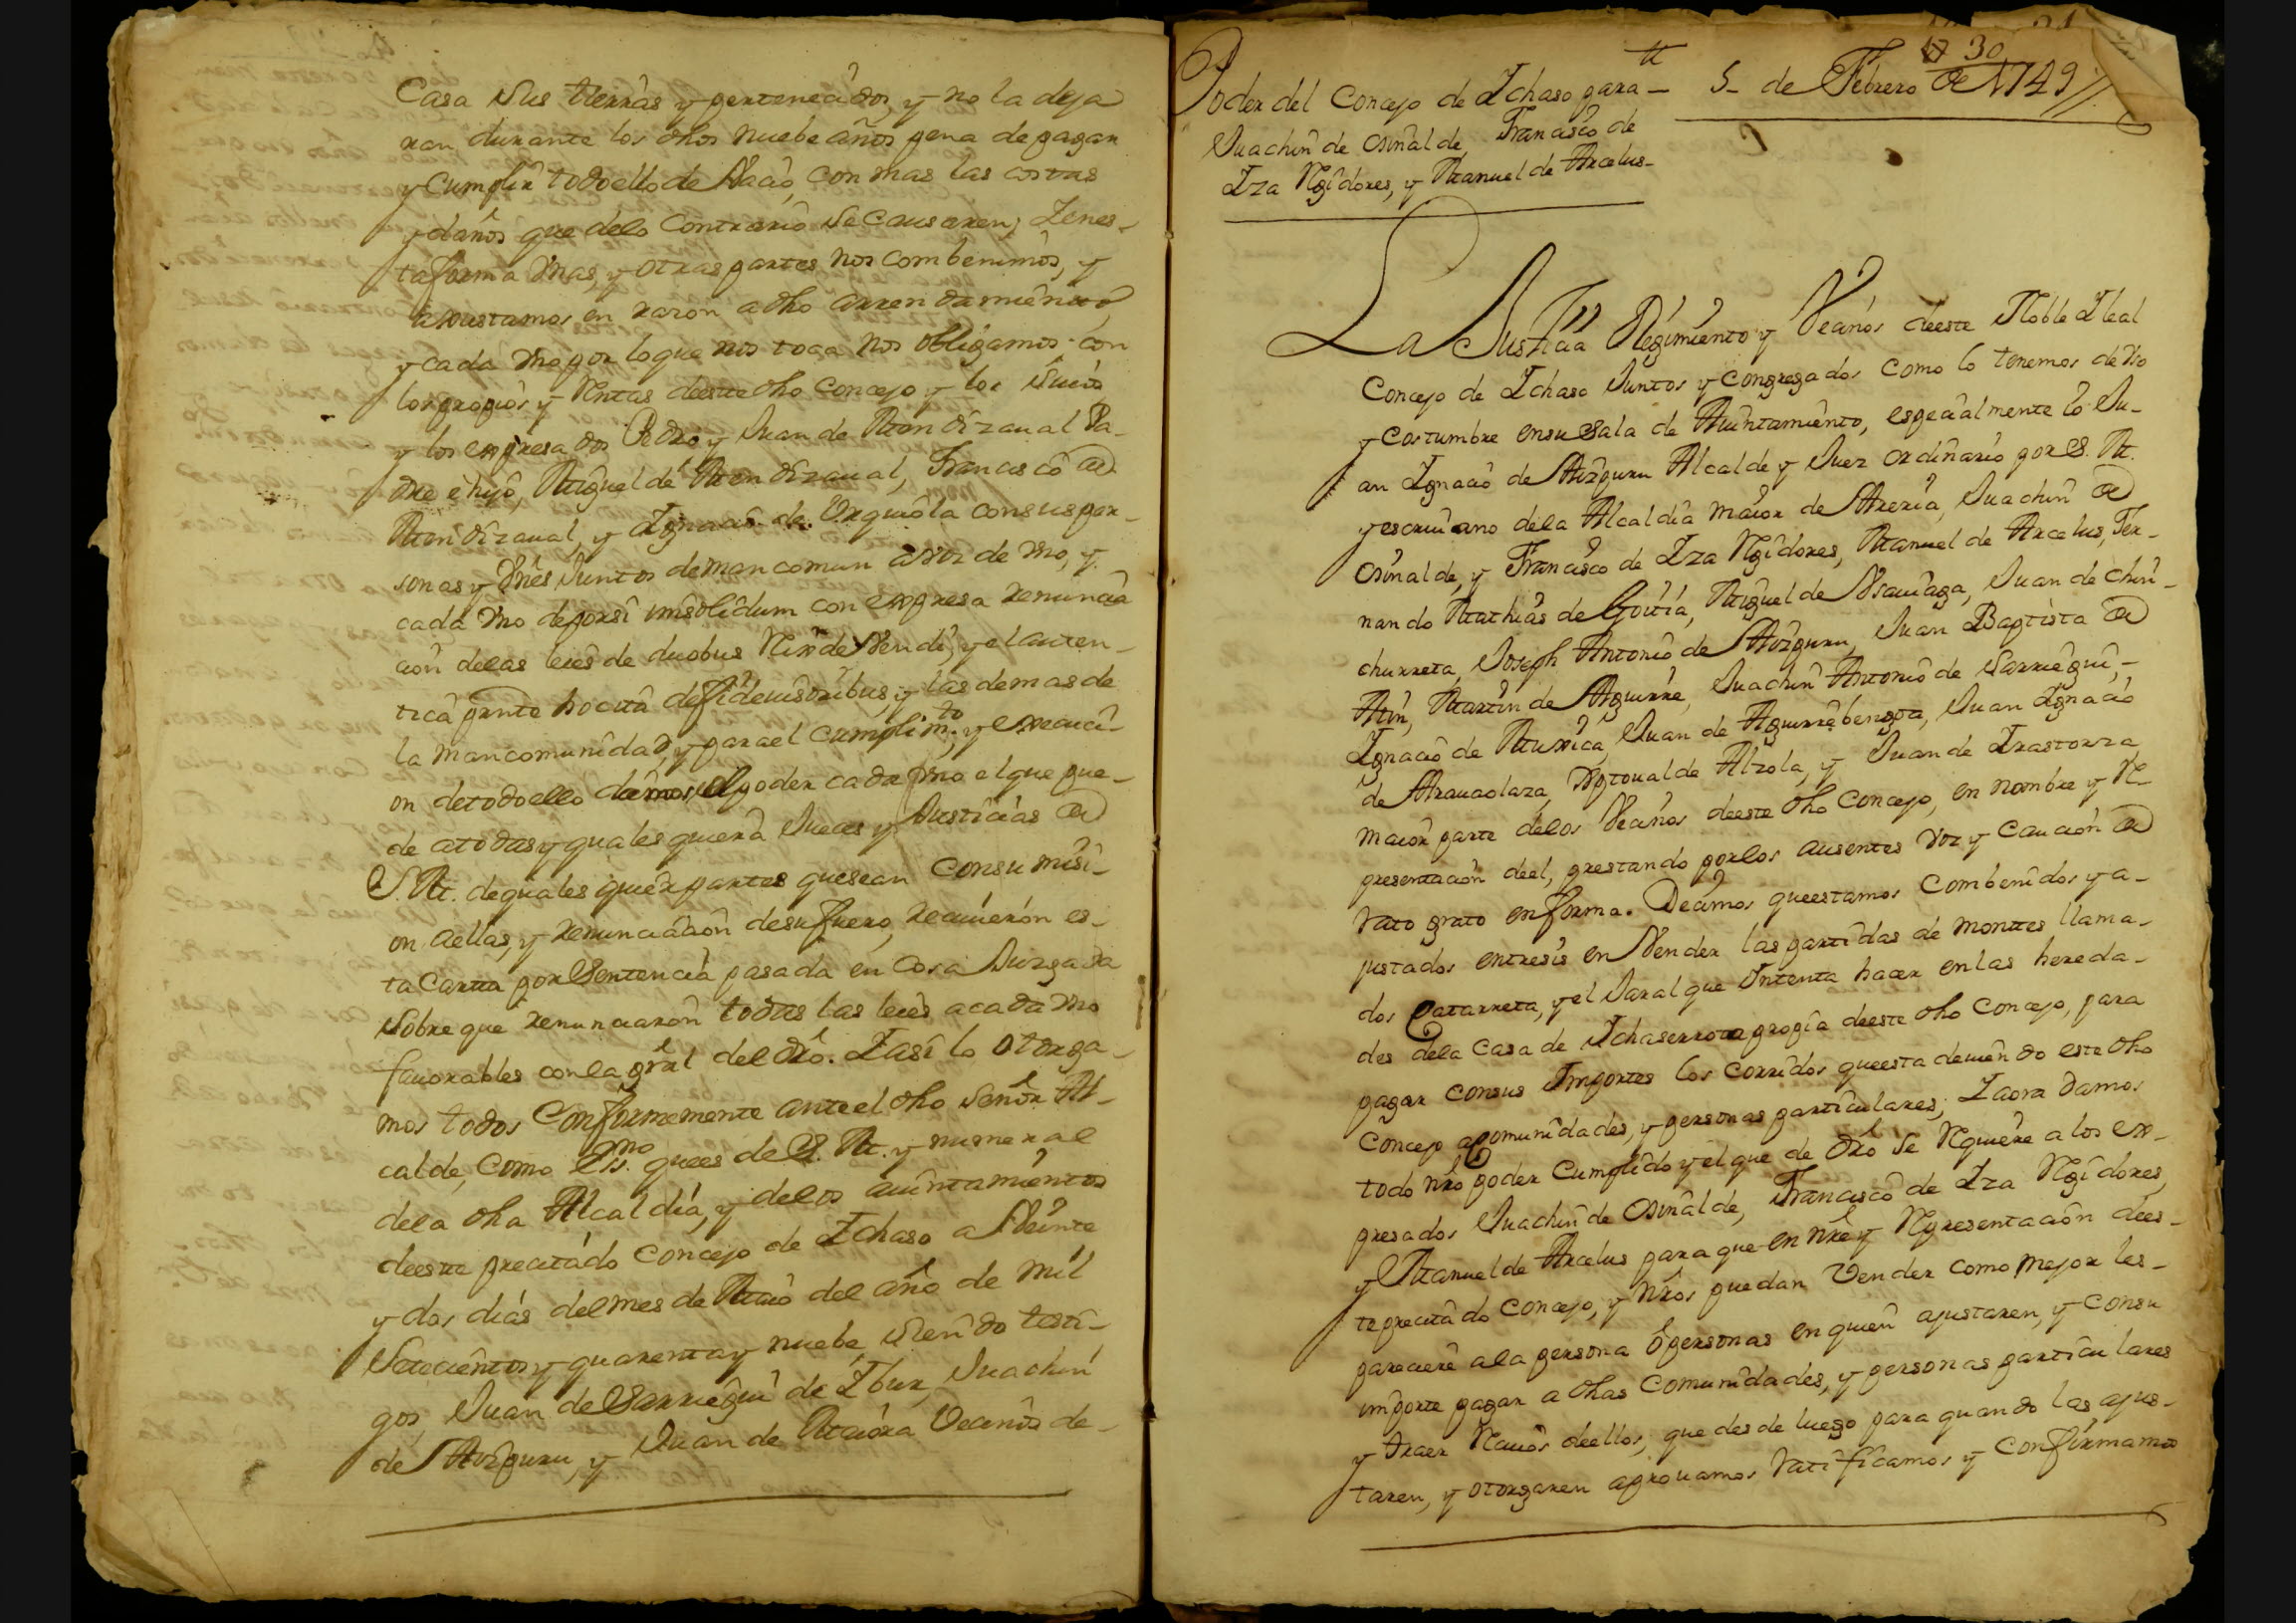 Casa sus tierras y pertenecidos, y no la deja
ran durante los dhos nuebe años pena de pagar
y cumplir todo ello de vacio, con mas las costas
y daños que delo Contrario se causaren; Y en es-
ta forma Unas, y otras partes nos combenimos, y
ajustamos en razon a dho arrendamiento,
y cada Uno por loque nos toca nos obligamos con
los propios y Rentas deeste dho Concejo y los suios,
y los expresados Pedro y Juan de Mendizaual Pa-
dre e hijo, Miguel de Mendizaual, Francisco de
Mendizaual, y Ignacio de Urquiola con sus per-
sonas y Vnes Juntos de mancomun a voz de Uno, y
cada Uno de porsi inssolidum con expresa renuncia
cion delas leies de duobus Reix de Vendi, y el auten-
tica presente hocita de fideiusoribus, y las demas de
la mancomunidad, y para el cumplimto. y execuci-
on detodoello damos poder cada Uno elque pue-
de atodas y qualesquiera Jueces y Justicias de
S. M. de qualesquier partes quesean Consu misi-
on aellas, y renunciacion desu fuero, reciuieron es-
ta Carta por Sentencia pasada en Cosa Juzgada
Sobre que renunciaron todas las leies acada Uno
fauorables con la gral del dro. Y asi lo otorga-
mos todos Conformemente anteel dho Señor Al-
calde, Como Essno. quees de S. M. y numeral
dela dha Alcaldia, y delos auintamientos
deeste precitado Concejo de Ichaso a Veinte
y dos dias delmes de Maio del año de mil
Setecientos y quarenta y nuebe, siendo testi-
gos, Juan de Sarriegui de Ibur, Juachin
de Aizpuru, y Juan de Maiora Vecinos de-
30
Poder del Concejo de Ichaso para
Juachin de Osinalde, Francisco de
Iza Regidores, y Manuel de Arcelus-
5- de Febrero de 1749
La Justicia Regimiento y Vecinos deeste Noble Y leal
Concejo de Ichaso Juntos y Congregados Como lo tenemos de Uso
y Costumbre ensu Sala de Auintamiento, especialmente lo Ju-
an Ignacio de Aizpuru Alcalde y Juez ordinario por S. M.
y escriuano dela Alcaldia maior de Areria, Juachin de
Osinalde, y Francisco de Iza Regidores, Manuel de Arcelus, Fer-
nando Mathias de Goitia, Miguel de Usauiaga, Juan de Chin-
churreta, Joseph Antonio de Aizpuru, Juan Baptista de
Alin, Martin de Aguirre, Juachin Antonio de Sarriegui,-
Ignacio de Muxica, Juan de Aguirrebengoa, Juan Ignacio
de Arauaolaza, Xptoual de Alzola, y Juan de Irastorza
maior parte delos Vecinos deeste dho Concejo, en nombre y Re
presentacion deel, prestando porlos ausentes voz y Caucion de
rato grato enforma. Decimos queestamos Combenidos y a-
justados entresis en Vender las partidas de montes llama-
dos Catarreta, y el Jaral que Intenta hacer enlas hereda-
des dela Casa de Ichaserrota propia deeste dho Concejo, para
pagar consus Importes los corridos queesta deuiendo este dho
Concejo a Comunidades, y personas particulares; Y aora damos
todo nro poder Cumplido y el que de dro se Requiere a los ex-
presados Juachin de Osinalde, Francisco de Iza Regidores,
y Manuel de Arcelus para que en nre y Representacion dees-
te precitado Concejo, y nros puedan Vender como mejor les-
pareciere ala persona o personas en quien ajustaren, y consu
importe pagar a dhas Comunidades, y personas particulares
y traer Reciuos deellos, que desde luego para quando las ajus-
taren, y otorgaren aprouamos Ratificamos y Confirmamos